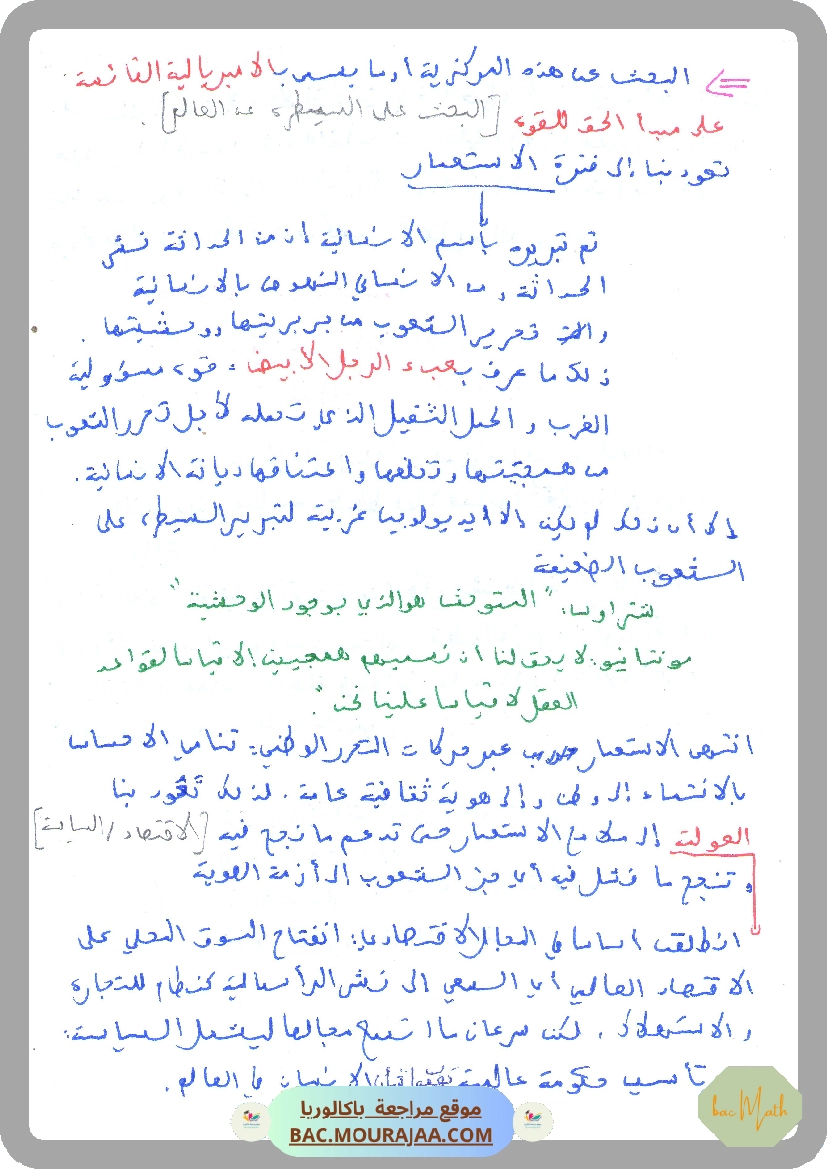 البحث عن هذه المركزية أو ما يسمى بالامبريالية القائمة
على مبدأ الحق للقوة [البحث على السيطرة عن العالم].
تعود بنا إلى فترة الاستعمار
تم تبريره بأسم الانسانية إذ من الحداثة نشر
الحداثة ومن الانساني النهوض بالانسانية
و تحرير الشعوب من بربريتها ووحشيتها.
ذلك ما عرف بعبء الرجل الأبيض: قوة مسؤولية
الغرب والحمل الثقيل الذي تحمله لأجل تحرر الشعوب
من همجيتها وتخلفها واعتناقها ديانة الانسانية.
إلا أن ذلك لم يكن الا ايديولوجيا غربية لتبرير السيطرة على
الشعوب الضعيفة
شتراوس: "المتوحش هو الذي بوجود الوحشية"
مونتانيو: لا يحق لنا أن نسميهم همجيين إلا قياسا لقواعد
العقل لا قياسا علينا نحن".
انتهى الاستعمار عبر حركات التحرر الوطني: تنامي الاحساس
بالانتماء إلى وطن وإلى هوية ثقافية عامة. لذلك تعود بنا
العولمة إلى ملامح الاستعمار حتى تدعم ما نجح فيه [الاقتصاد/السياسة]
وتنجح ما فشل فيه أي جر الشعوب إلى أزمة الهوية
انطلقت أساسا في المجال الاقتصادي: انفتاح السوق المحلي على
الاقتصاد العالمي أي السعي إلى نشر الرأسمالية كنظام للتجارة
والاستهلاك. لكن سرعان ما اتسع مجالها ليشمل السياسة:
تأسيس حكومة عالمية الانسان في العالم.
موقع مراجعة باكالوريا
BAC.MOURAJAA.COM
bac Math